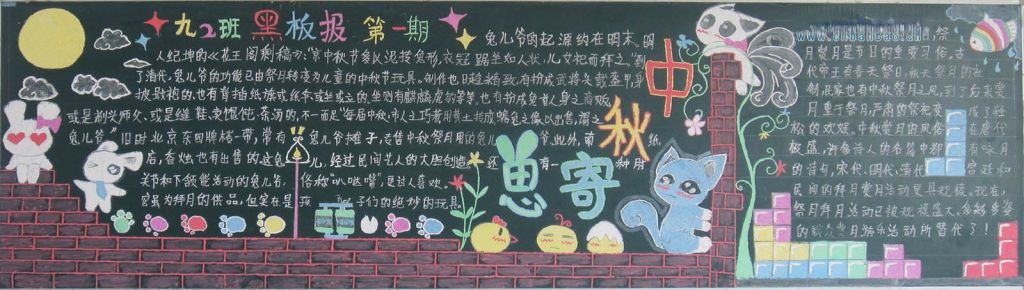 九2班黑板报 第一期
兔儿爷的起源约在明末。明
人纪坤的《花王阁剩稿》:"京中秋节多以泥抟兔形,衣冠踞坐如人状,儿女祀而拜之。"到
了清代,兔儿爷的功能已由祭月转变为儿童的中秋节玩具。制作也日趋精致,有扮成武将头戴盔甲、身
披戟袍的,也有背插纸旗或纸伞、或坐或立的。坐则有麒麟虎豹等等。也有扮成兔首人身之商贩、
或是剃头师父、或是缝鞋、卖馄饨、茶汤的,不一而足。"每届中秋,市人之巧者用黄土抟成蟾兔之像以出售,谓之
兔儿爷"。旧时北京东四牌楼一带,常有兔儿爷摊子,专售中秋祭月用的兔儿爷。此外,南纸
店,香烛也有出售的。这兔儿,经过民间艺人的大胆创造,还有一种肘
关节和下颌能活动的兔儿爷,俗称"叭哒嘴",更讨人喜欢。
它虽为拜月的供品,但实在是孩子们的绝妙的玩具。
中秋
思寄
祭
月赏月是节日的重要习俗。古
代帝王有春天祭日,秋天祭月的社
制,民家也有中秋祭月之风,到了后来赏
月重于祭月,严肃的祭祀变成了轻
松的欢娱。中秋赏月的风俗在唐代
极盛,许多诗人的名篇中都有咏月
的诗句,宋代、明代、清代宫廷和
民间的拜月赏月活动更具规模。现在,
祭月拜月活动已被规模盛大、多彩多姿
的群众赏月游乐活动所替代了!